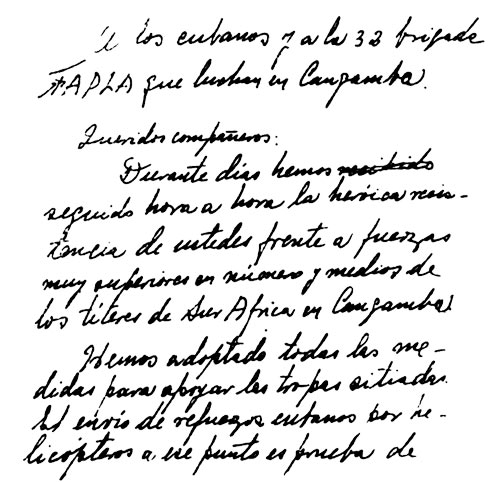 A los cubanos y a la 32 brigada
FAPLA que luchan en Cangamba.
Queridos compañeros:
Durante días hemos recibido
seguido hora a hora la heróica resis-
tencia de ustedes frente a fuerzas
muy superiores en número y medios de
los títeres de Sur Africa en Cangamba.
Hemos adoptado todas las me-
didas para apoyar las tropas sitiadas.
El envío de refuerzos cubanos por he-
licópteros a ese punto es prueba de